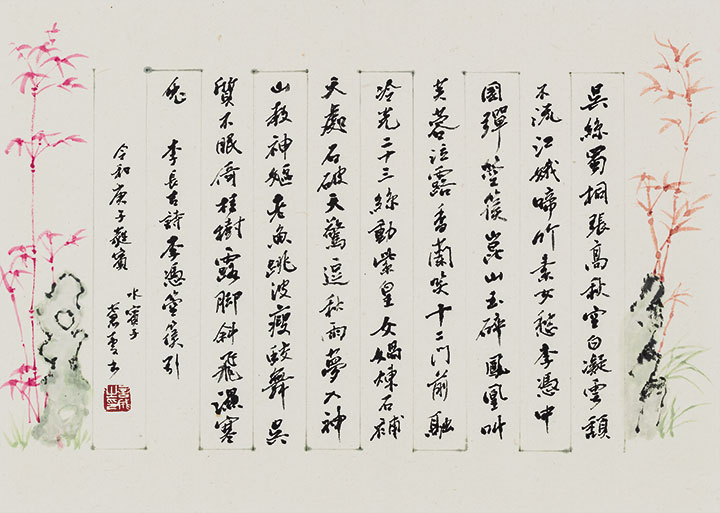 吳絲蜀桐張高秋空白凝雲頹
不流江娥啼竹素女愁李憑中
國彈箜篌崑山玉碎鳳凰叫
芙蓉泣露香蘭笑十二門前融
冷光二十三絲動紫皇女媧煉石補
天處石破天驚逗秋雨夢入神
山教神嫗老魚跳波瘦蛟舞吳
質不眠倚桂樹露脚斜飛濕寒
兔 李長吉詩李憑箜篌引
令和庚子蕤賓
水賓子
書